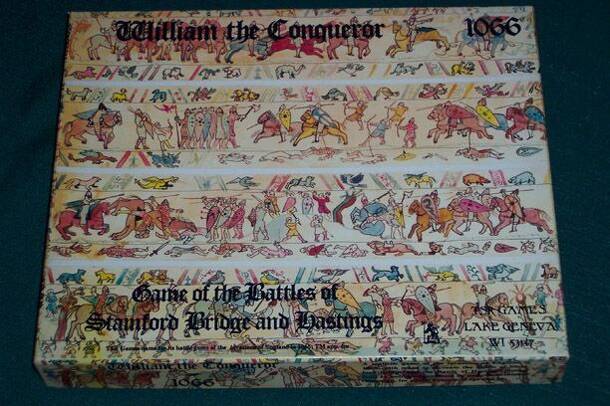 William the Conqueror 1066
Game of the Battles of
Stamford Bridge and Hastings
TSR GAMES
LAKE GENEVA
WI 53147
William the Conqueror
1066